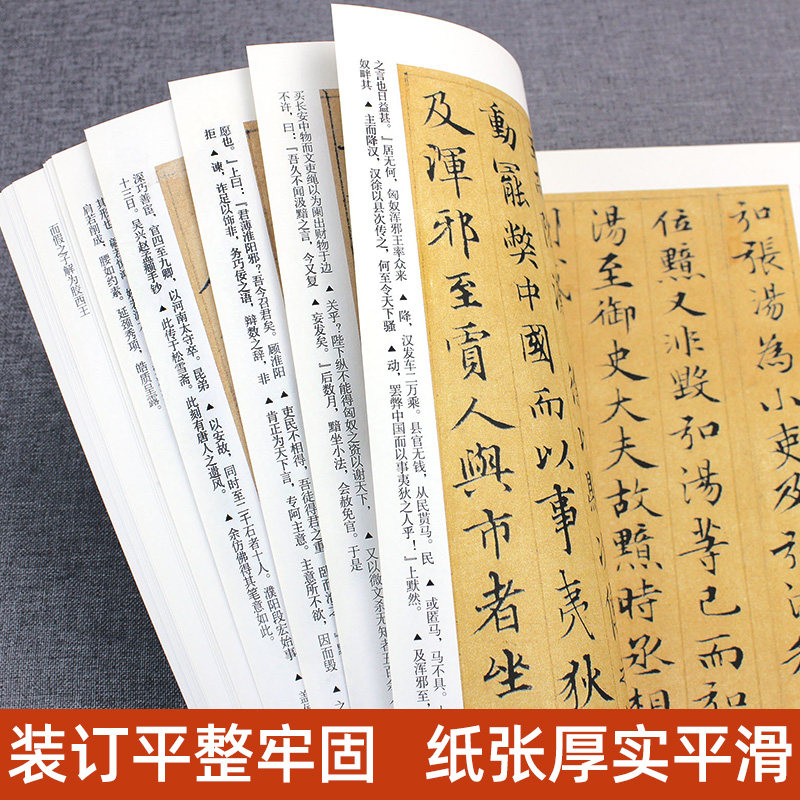 弘張湯為小吏及弘湯
位黯又非毀弘湯等已而
湯至御史大夫故黯時丞相
動罷弊中國而以事夷狄
及渾邪至賈人與市者坐
之言也日益甚。』居无何,匈奴浑邪王率众来▲降,汉发车二万乘。县官无钱,从民贳马。民▲或匿马,马不具。
奴畔其▲主而降汉,汉徐以县次传之,何至令天下骚▲动,罢弊中国而以事夷狄之人乎!』上默然。▲及浑邪至,
买长安中物而文吏绳以为阑出财物于边▲关乎?陛下纵不能得匈奴之资以谢天下,▲又以微文杀无知者五百
不许,曰:『吾久不闻汲黯之言,今又复▲妄发矣。』后数月,黯坐小法,会赦免官。于是
愿也。』上曰:『君薄淮阳邪?吾今召君矣。顾淮阳▲吏民不相得,吾徒得君之重,卧而
拒▲谏,诈足以饰非,务巧佞之语,辩数之辞,非▲肯正为天下言,专阿主意。主意所不欲,因而毁
深巧善宦,官四至九卿▲以河南太守卒。昆弟▲以安故,同时至二千石者十人。濮阳段宏始事
十三日。吴兴赵孟頫手钞▲此传于松雪斋。此刻有唐人之遗风。▲余仿佛得其笔意如此。
其形也,
肩若削成,腰如约素。延颈秀项,皓质呈露。
而假之子解为胶西王
装订平整牢固 纸张厚实平滑